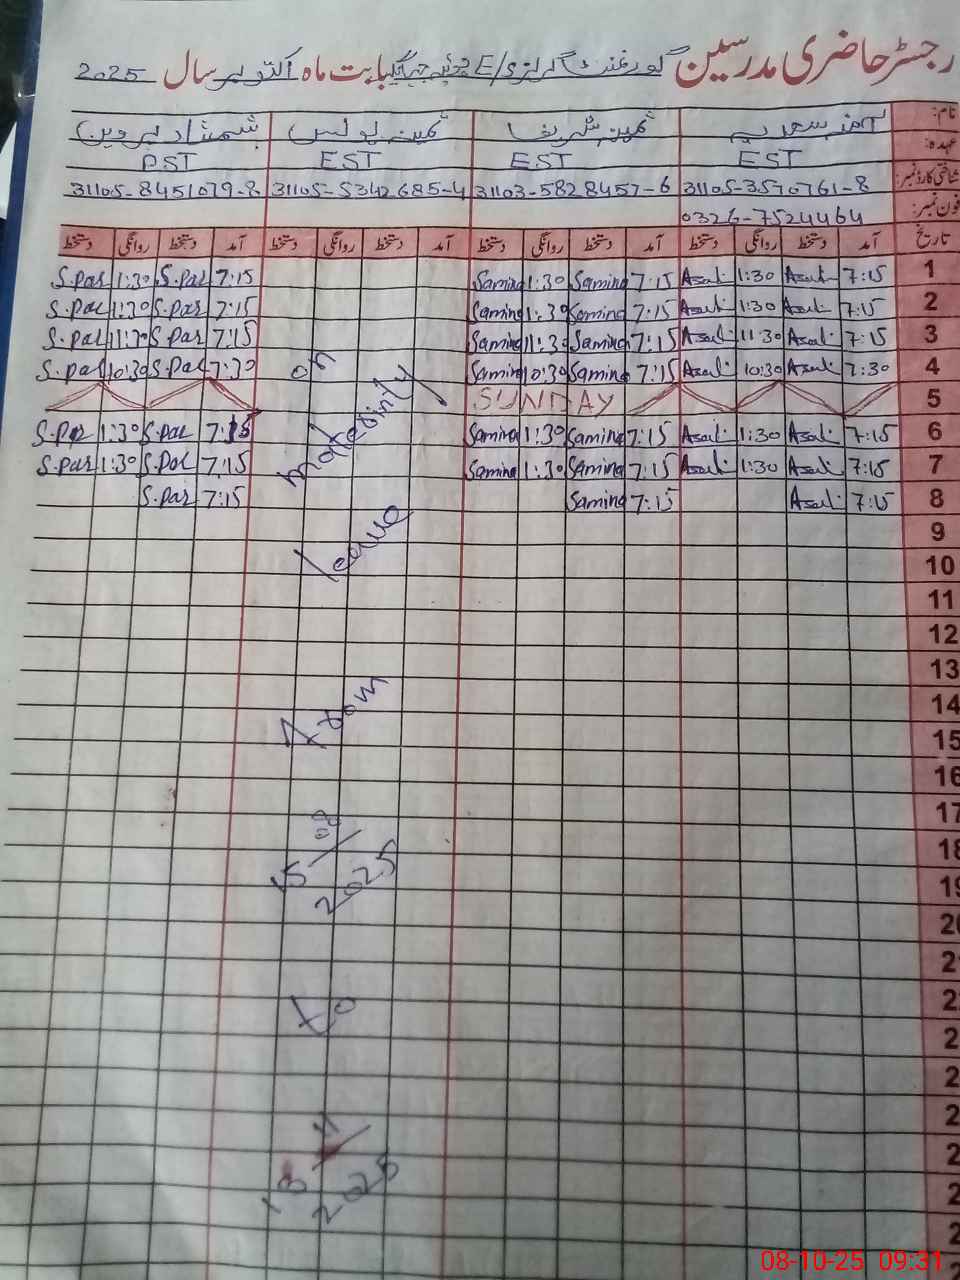 رجسٹر حاضری مدرسین گورنمنٹ گرلز E/S بابت ماہ اکتوبر سال 2025
نام: آمنہ سعدیہ ثمین شریف ثمینہ یونس شمشاد پروین
عہدہ: EST EST EST PST
شناختی کارڈ نمبر: 31105-3570761-8 31103-5828457-6 31105-5342685-4 31105-8451079-8
فون نمبر: 0326-7524464
تاریخ آمد دستخط روانگی دستخط آمد دستخط روانگی دستخط آمد دستخط روانگی دستخط آمد دستخط روانگی دستخط
1 7:15 1:30 7:15 Samina 1:30 Samina 7:15 S.par 1:30 S.par
2 7:15 1:30 7:15 Samina 1:30 Samina 7:15 S.par 1:30 S.par
3 7:15 11:30 7:15 Samina 11:30 Samina 7:15 S.par 11:30 S.par
4 7:30 10:30 7:15 Samina 10:30 Samina 7:30 S.par 10:30 S.par
5 SUNDAY
6 7:15 1:30 7:15 Samina 1:30 Samina 7:15 S.par 1:30 S.par
7 7:15 1:30 7:15 Samina 1:30 Samina 7:15 S.par 1:30 S.par
8 7:15 7:15 Samina 7:15 S.par
9
10
11
12
13
14
15
16
17
18
19
on
leave
15/08/2025
to
2025
08-10-25 09:31